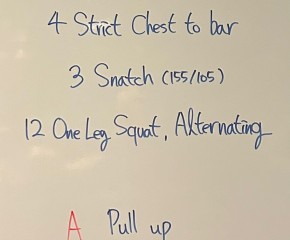 4 Strict Chest to bar
3 Snatch (155/105)
12 One Leg Squat, Alternating
A Pull up